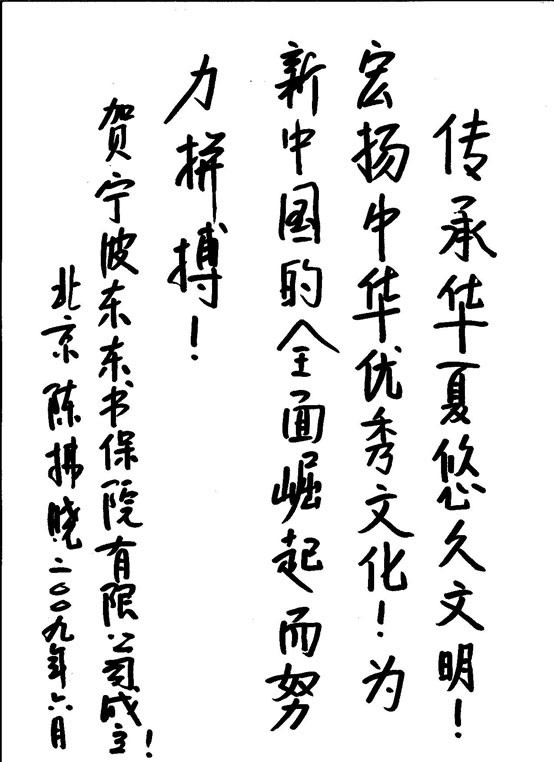 传承华夏悠久文明！
宏扬中华优秀文化！为
新中国的全面崛起而努
力拼搏！
贺宁波东东书保院有限公司成立！
北京陈拂晓二〇〇九年六月